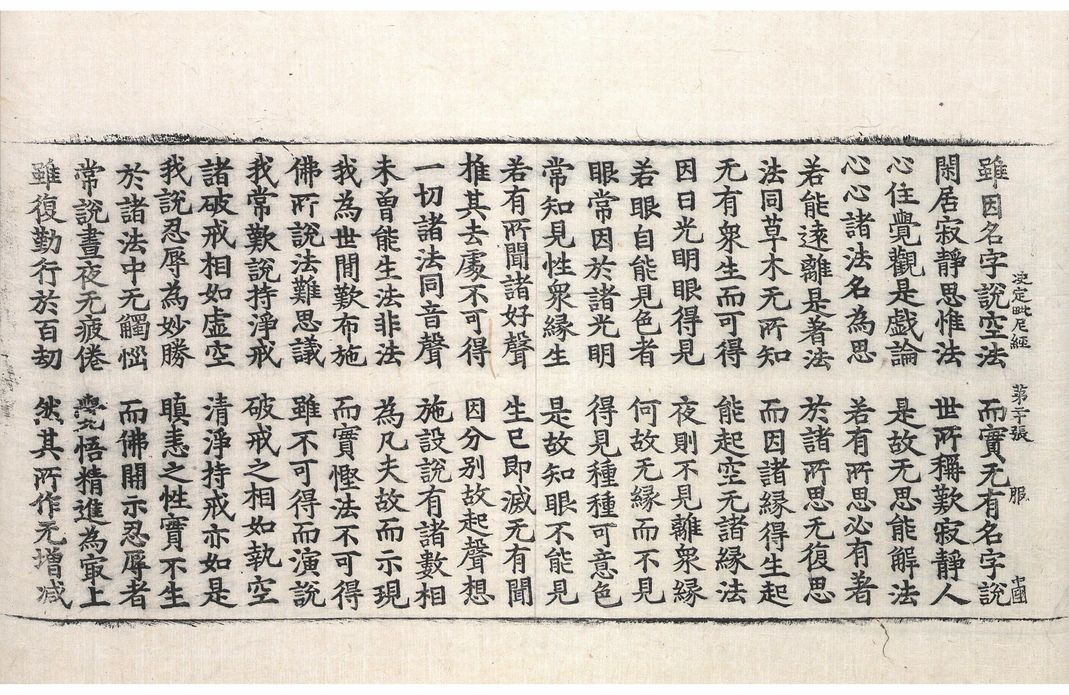 决定毗尼經 苐二十張 服
雖因名字說空法 而實无有名字說
閑居寂靜思惟法 世所稱歎寂靜人
心住覺觀是戲論 是故无思能解法
心心諸法名為思 若有所思必有著
若能遠離是著法 於諸所思无復思
法同草木无所知 而因諸緣得生起
无有衆生而可得 能起空无諸緣法
因日光明眼得見 夜則不見離衆緣
若眼自能見色者 何故无緣而不見
眼常因於諸光明 得見種種可意色
常知見性衆緣生 是故知眼不能見
若有所聞諸好聲 生已即滅无有聞
推其去處不可得 因分別故起聲想
一切諸法同音聲 施設說有諸數相
未曾能生法非法 為凡夫故而示現
我為世間歎布施 而實慳法不可得
佛所說法難思議 雖不可得而演說
我常歎說持淨戒 破戒之相如執空
諸破戒相如虛空 清淨持戒亦如是
我說忍辱為妙勝 瞋恚之性實不生
於諸法中无觸惱 而佛開示忍辱者
常說晝夜无疲倦 覺悟精進為冣上
雖復勤行於百劫 然其所作无增減